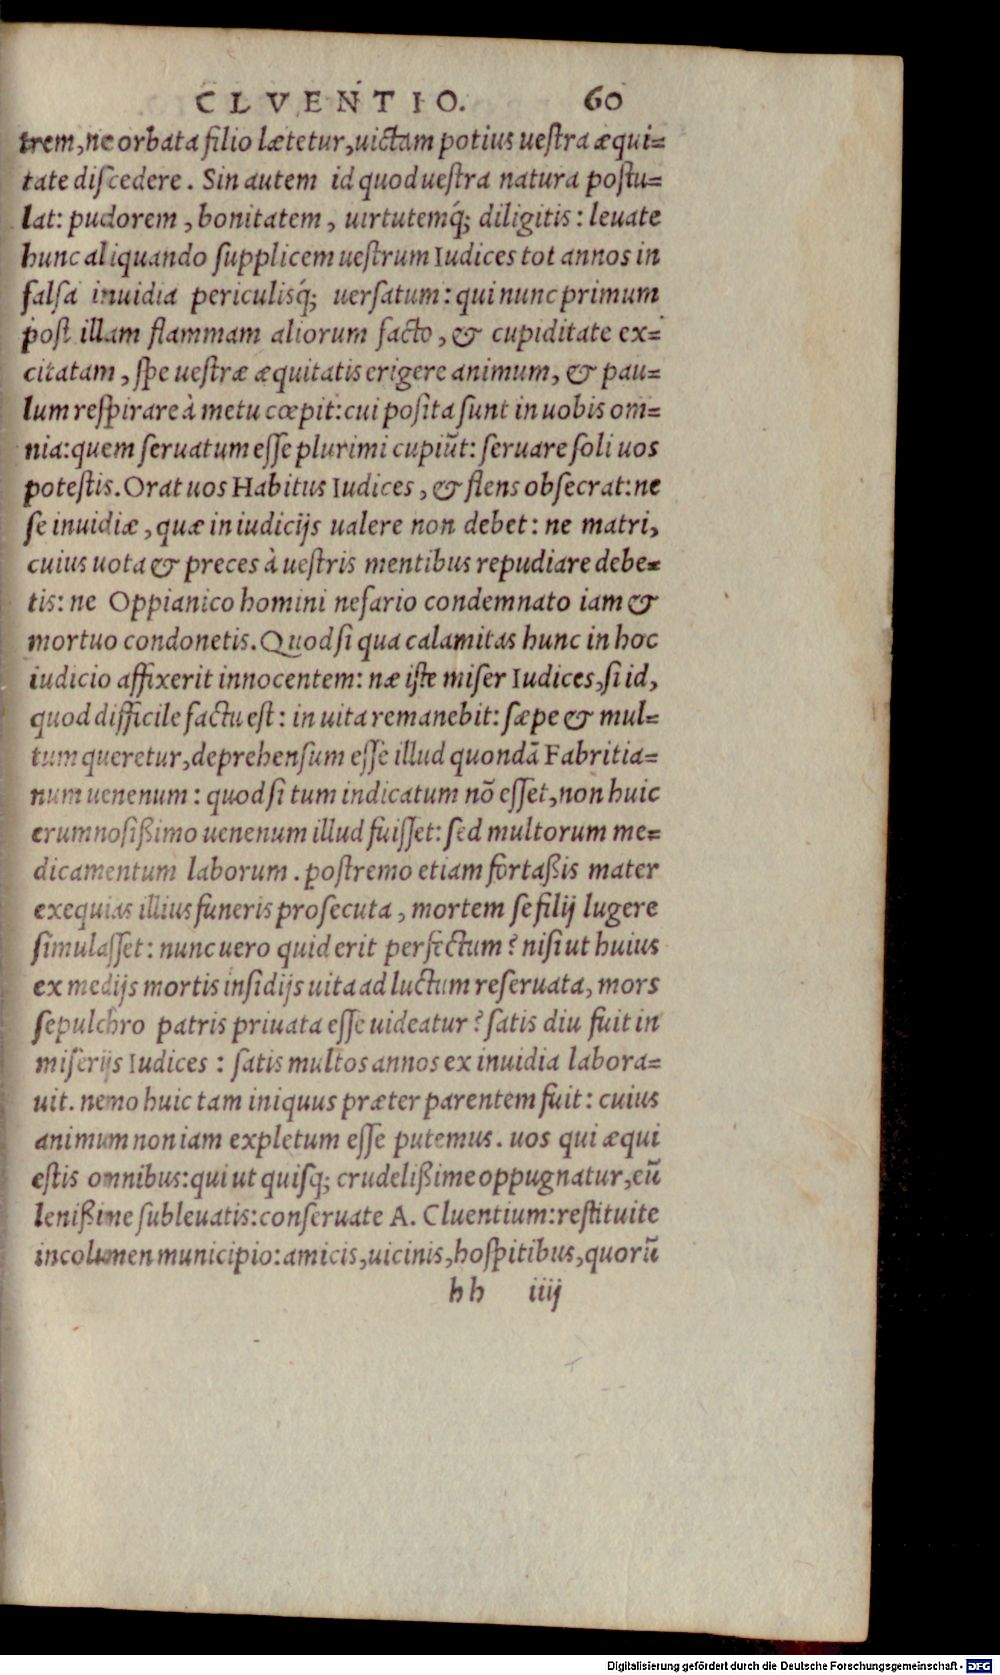 CLVENTIO. 60
trem, ne orbata filio lætetur, uictam potius uestra æqui=
tate discedere. Sin autem id quod uestra natura postu=
lat: pudorem, bonitatem, uirtutemq́; diligitis: leuate
hunc aliquando supplicem uestrum Iudices tot annos in
falsa inuidia periculisq́; uersatum: qui nunc primum
post illam flammam aliorum facto, & cupiditate ex=
citatam, spe uestræ æquitatis erigere animum, & pau=
lum respirare à metu cœpit: cui posita sunt in uobis om=
nia: quem seruatum esse plurimi cupiūt: seruare soli uos
potestis. Orat uos Habitus Iudices, & flens obsecrat: ne
se inuidiæ, quæ in iudicijs ualere non debet: ne matri,
cuius uota & preces à uestris mentibus repudiare debe=
tis: ne Oppianico homini nefario condemnato iam &
mortuo condonetis. Quod si qua calamitas hunc in hoc
iudicio affixerit innocentem: næ iste miser Iudices, si id,
quod difficile factu est: in uita remanebit: sæpe & mul=
tum queretur, deprehensum esse illud quondā Fabritia=
num uenenum: quod si tum indicatum nō esset, non huic
erumnosißimo uenenum illud fuisset: sed multorum me=
dicamentum laborum. postremo etiam fortaßis mater
exequias illius funeris prosecuta, mortem se filij lugere
simulasset: nunc uero quid erit perfectum? nisi ut huius
ex medijs mortis insidijs uita ad luctum reseruata, mors
sepulchro patris priuata esse uideatur? satis diu fuit in
miserijs Iudices: satis multos annos ex inuidia labora=
uit. nemo huic tam iniquus præter parentem fuit: cuius
animum non iam expletum esse putemus. uos qui æqui
estis omnibus: qui ut quisq; crudelißime oppugnatur, eū
lenißime subleuatis: conseruate A. Cluentium: restituite
incolumen municipio: amicis, uicinis, hospitibus, quorū
hh iiij
Digitalisierung gefördert durch die Deutsche Forschungsgemeinschaft - DFG